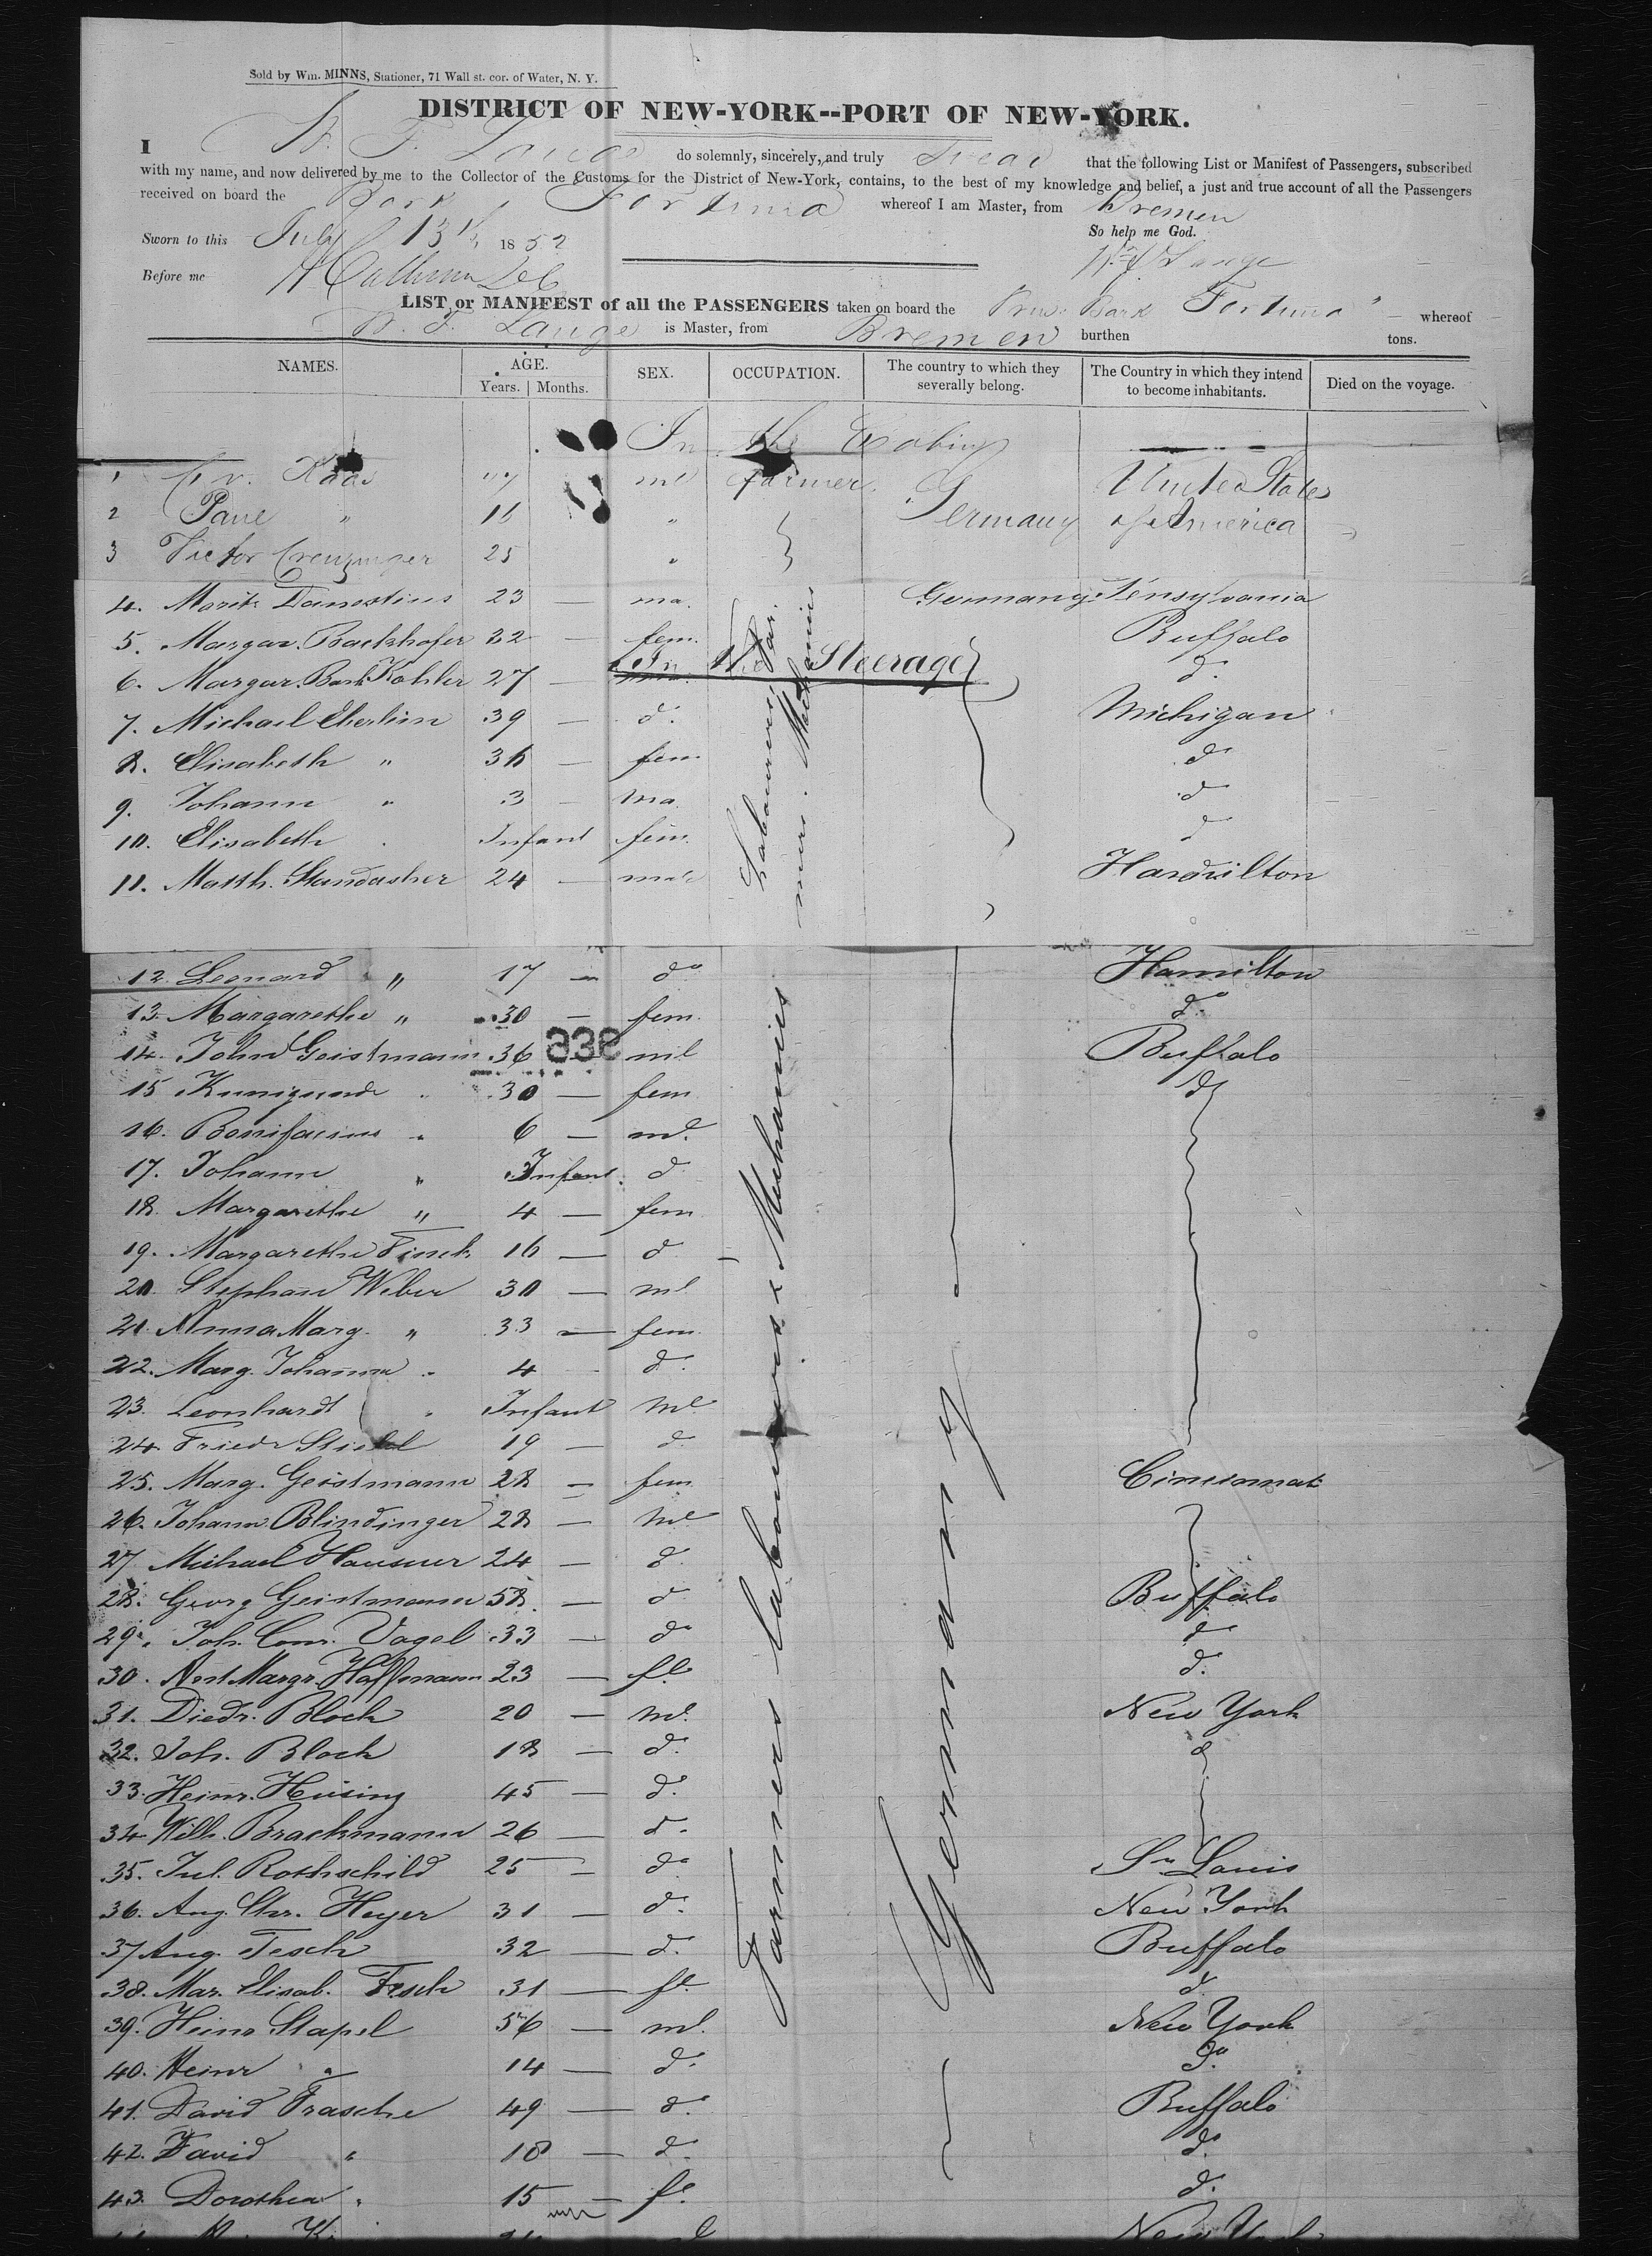 Sold by Wm. MINNS, Stationer, 71 Wall st. cor. of Water, N. Y.
DISTRICT OF NEW-YORK--PORT OF NEW-YORK.
I W. F. Lange do solemnly, sincerely, and truly Swear that the following List or Manifest of Passengers, subscribed
with my name, and now delivered by me to the Collector of the Customs for the District of New-York, contains, to the best of my knowledge and belief, a just and true account of all the Passengers
received on board the Bark Fortuna whereof I am Master, from Bremen
Sworn to this July 13th 1852 So help me God.
Before me W F Lange
LIST or MANIFEST of all the PASSENGERS taken on board the Prus. Bark Fortuna " whereof
W. F. Lange is Master, from Bremen burthen tons.
NAMES. AGE. Years. Months. SEX. OCCUPATION. The country to which they severally belong. The Country in which they intend to become inhabitants. Died on the voyage.
In the Cabin
1 ml Farmer Germany United States
2 " 16 " of America
3 Victor Creuzinger 25 "
4. Moritz 23 — ma. Germany Pensylvania
5. Margar. Backhofer 32 — fem. Buffalo
In the Steerage
6. Margar. Barb. Kohler 27 — d.
7. Michael Eberlein 39 — d. Michigan
8. Elisabeth " 36 — fem d
9. Johann " 3 — ma. d
10. Elisabeth Infant fem. d
11. Matth. Standasher 24 — male
12. Leonard " 17 — do Hamilton
13. Margarethe " 30 — fem. do
14. John Geistmann 36 — ml Buffalo
15 Kunigunde 30 — fem d
16. Bonifacius " 6 — ml.
17. Johann " Infant. d
18. Margarethe " 4 — fem
19. Margarethe Finck 16 — d
20. Stephan Weber 30 — ml
21. Anna Marg. " 33 — fem.
22. Marg. Johanna " 4 — d.
23. Leonhardt " Infant ml
24. Friedr 19 — d.
25. Marg. Geistmann 28 — fem Cincinnati
26. Johann Blindinger 28 — ml
27 Michael Hausner 24 — d.
28. Georg Geistmann 58. — d Buffalo
29. Joh. Conr. Vogel 33 — do d
30. Marg. Hoffmann 23 — fl. d.
31. Diedr. Block 20 — ml. New York
32. Joh. Block 18 — d. d
33. Heinr. Heising 45 — d.
34. Wilh. Brackmann 26 — d.
35. Jul. Rothschild 25 — do St Louis
36. Aug. Chr. Heyer 31 — d. New York
37 Aug. Tesch 32 — d. Buffalo
38. Mar. Elisab. Tesch 31 — fl. d
39. Heinr Stapel 56 — ml. New York
40. Heinr " 14 — d. do
41. David Frasche 49 — d. Buffalo
42. David " 18 — d. d.
43. Dorothea " 15 — fl. d.
New York
Farmers Labourers & Mechanics
Germany